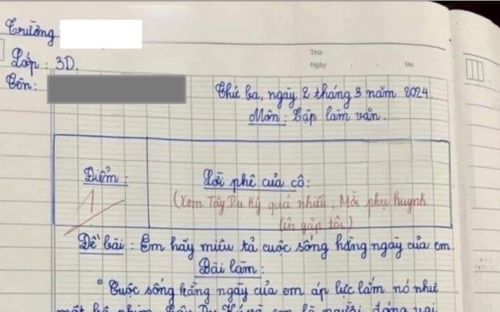 Trường
Lớp: 3D.
Tên:
Thứ
Ngày No.
Thứ ba, ngày 2 tháng 3 năm 2024.
Môn: Tập làm văn.
Điểm:
1
Lời phê của cô:
(Xem Tây Du Ký quá nhiều, Mời phụ huynh
lên gặp tôi)
Đề bài: Em hãy miêu tả cuộc sống hằng ngày của em.
Bài làm:
"Cuộc sống hằng ngày của em áp lực lắm nó như
một bộ phim Tây Du Ký và em là người đóng vai